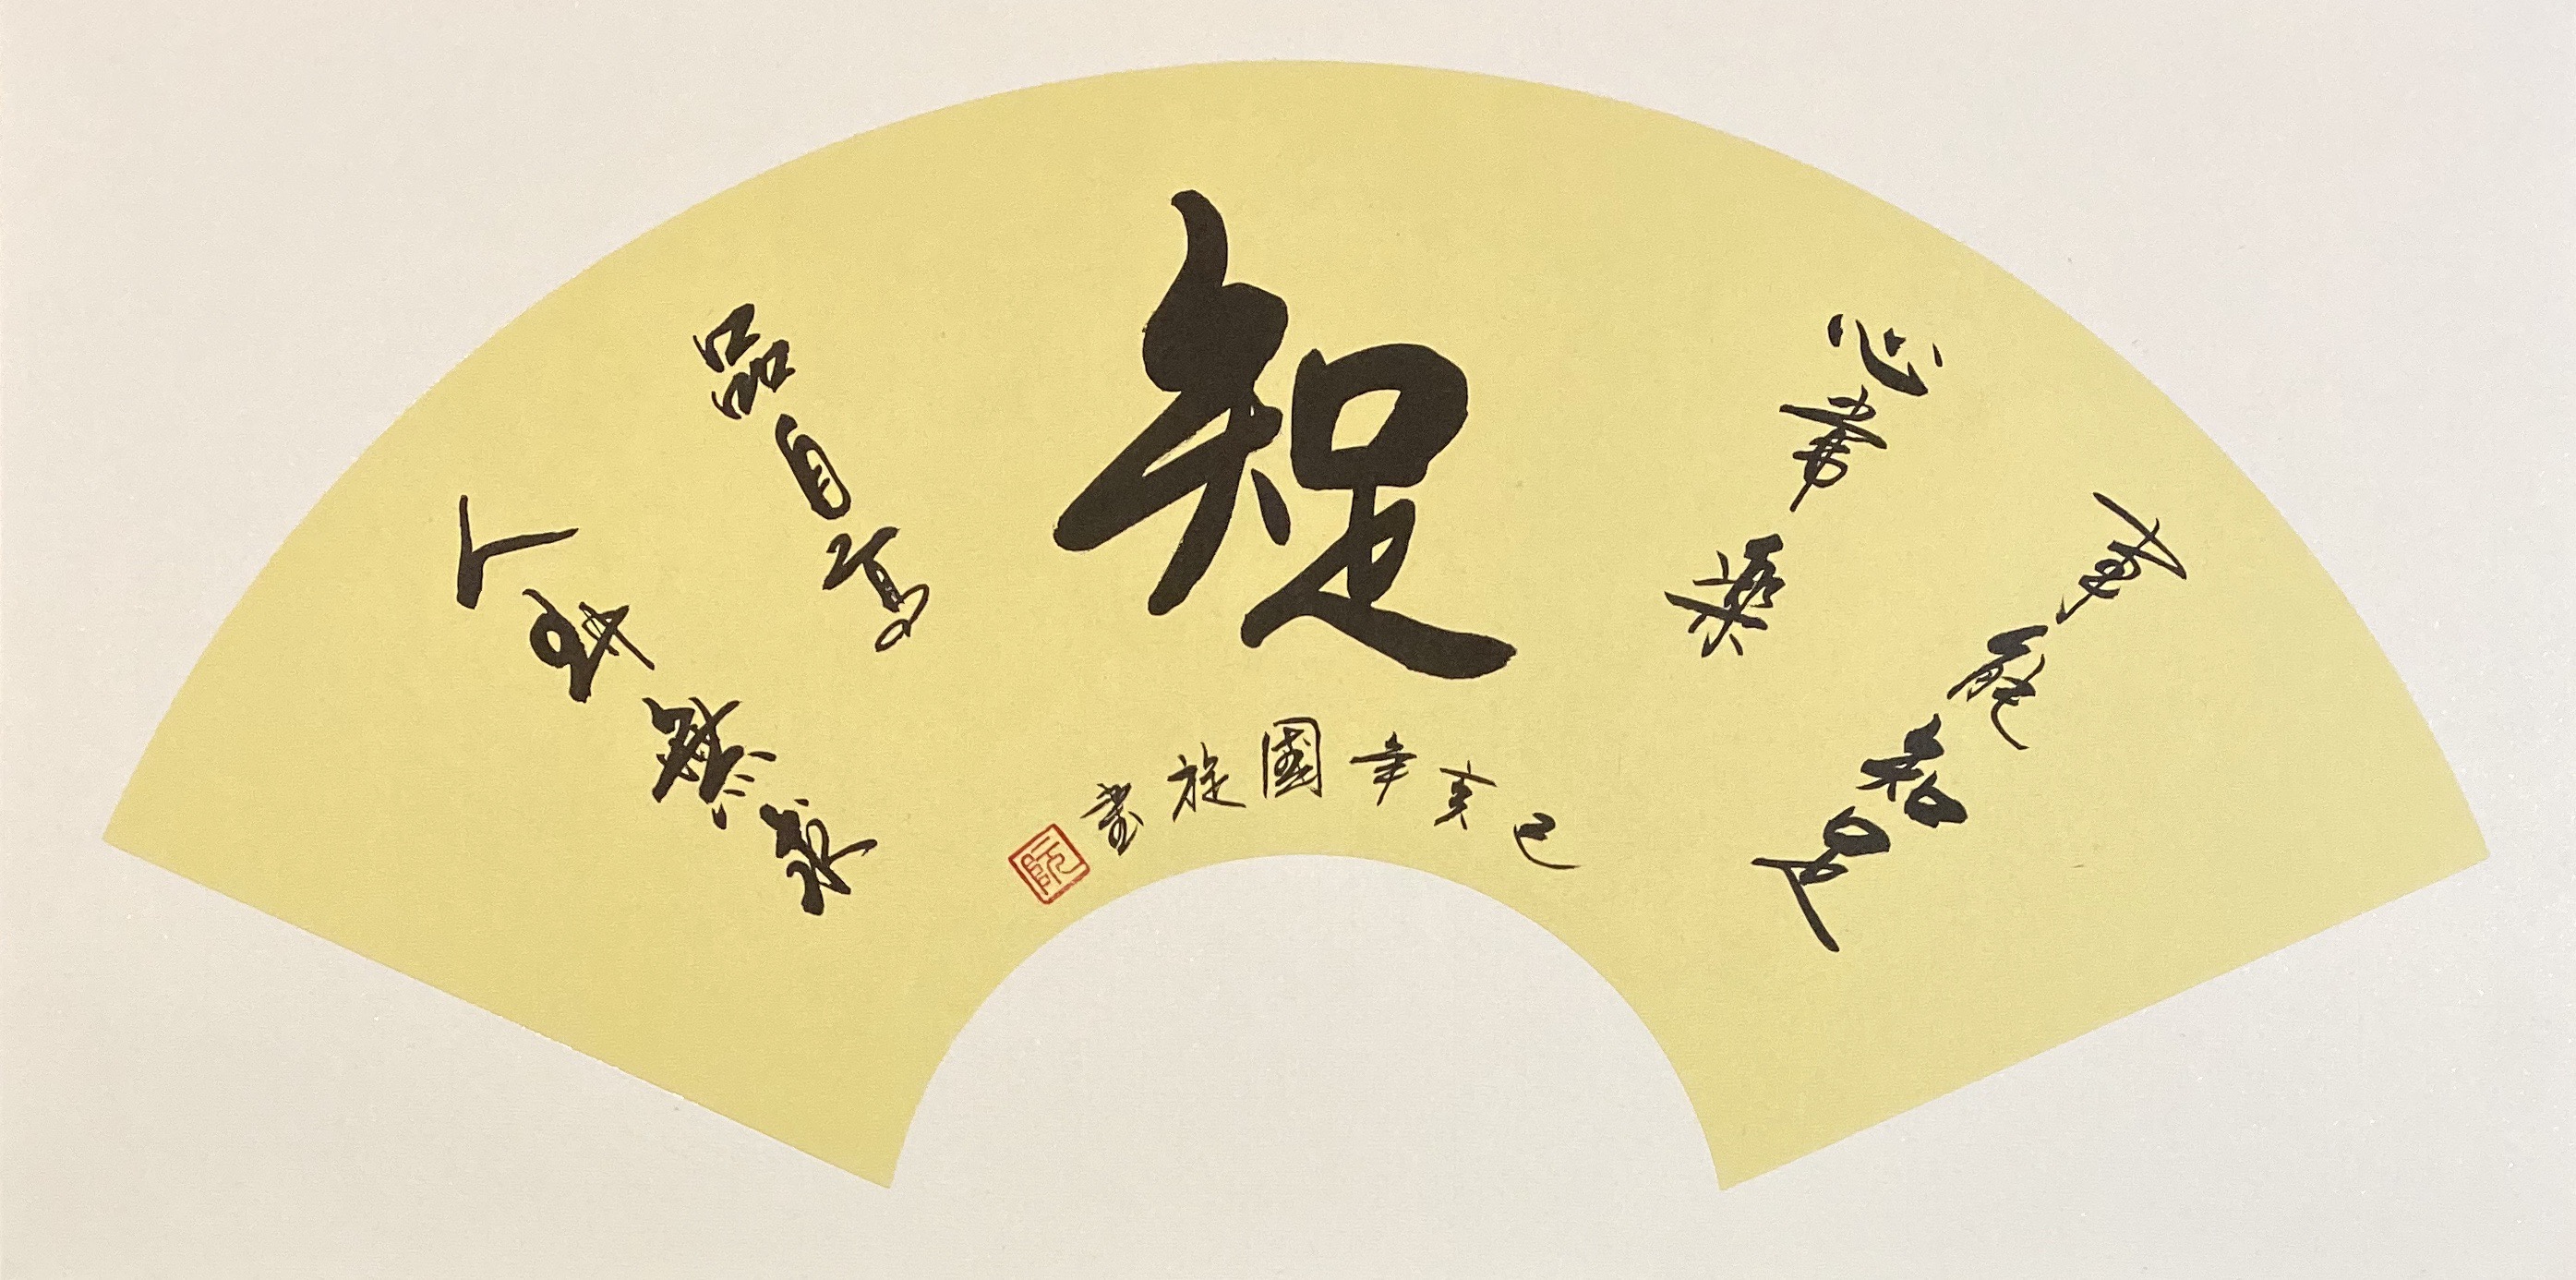 事能知足
心常樂
知足
人到無求
品自高
己亥年國旋書